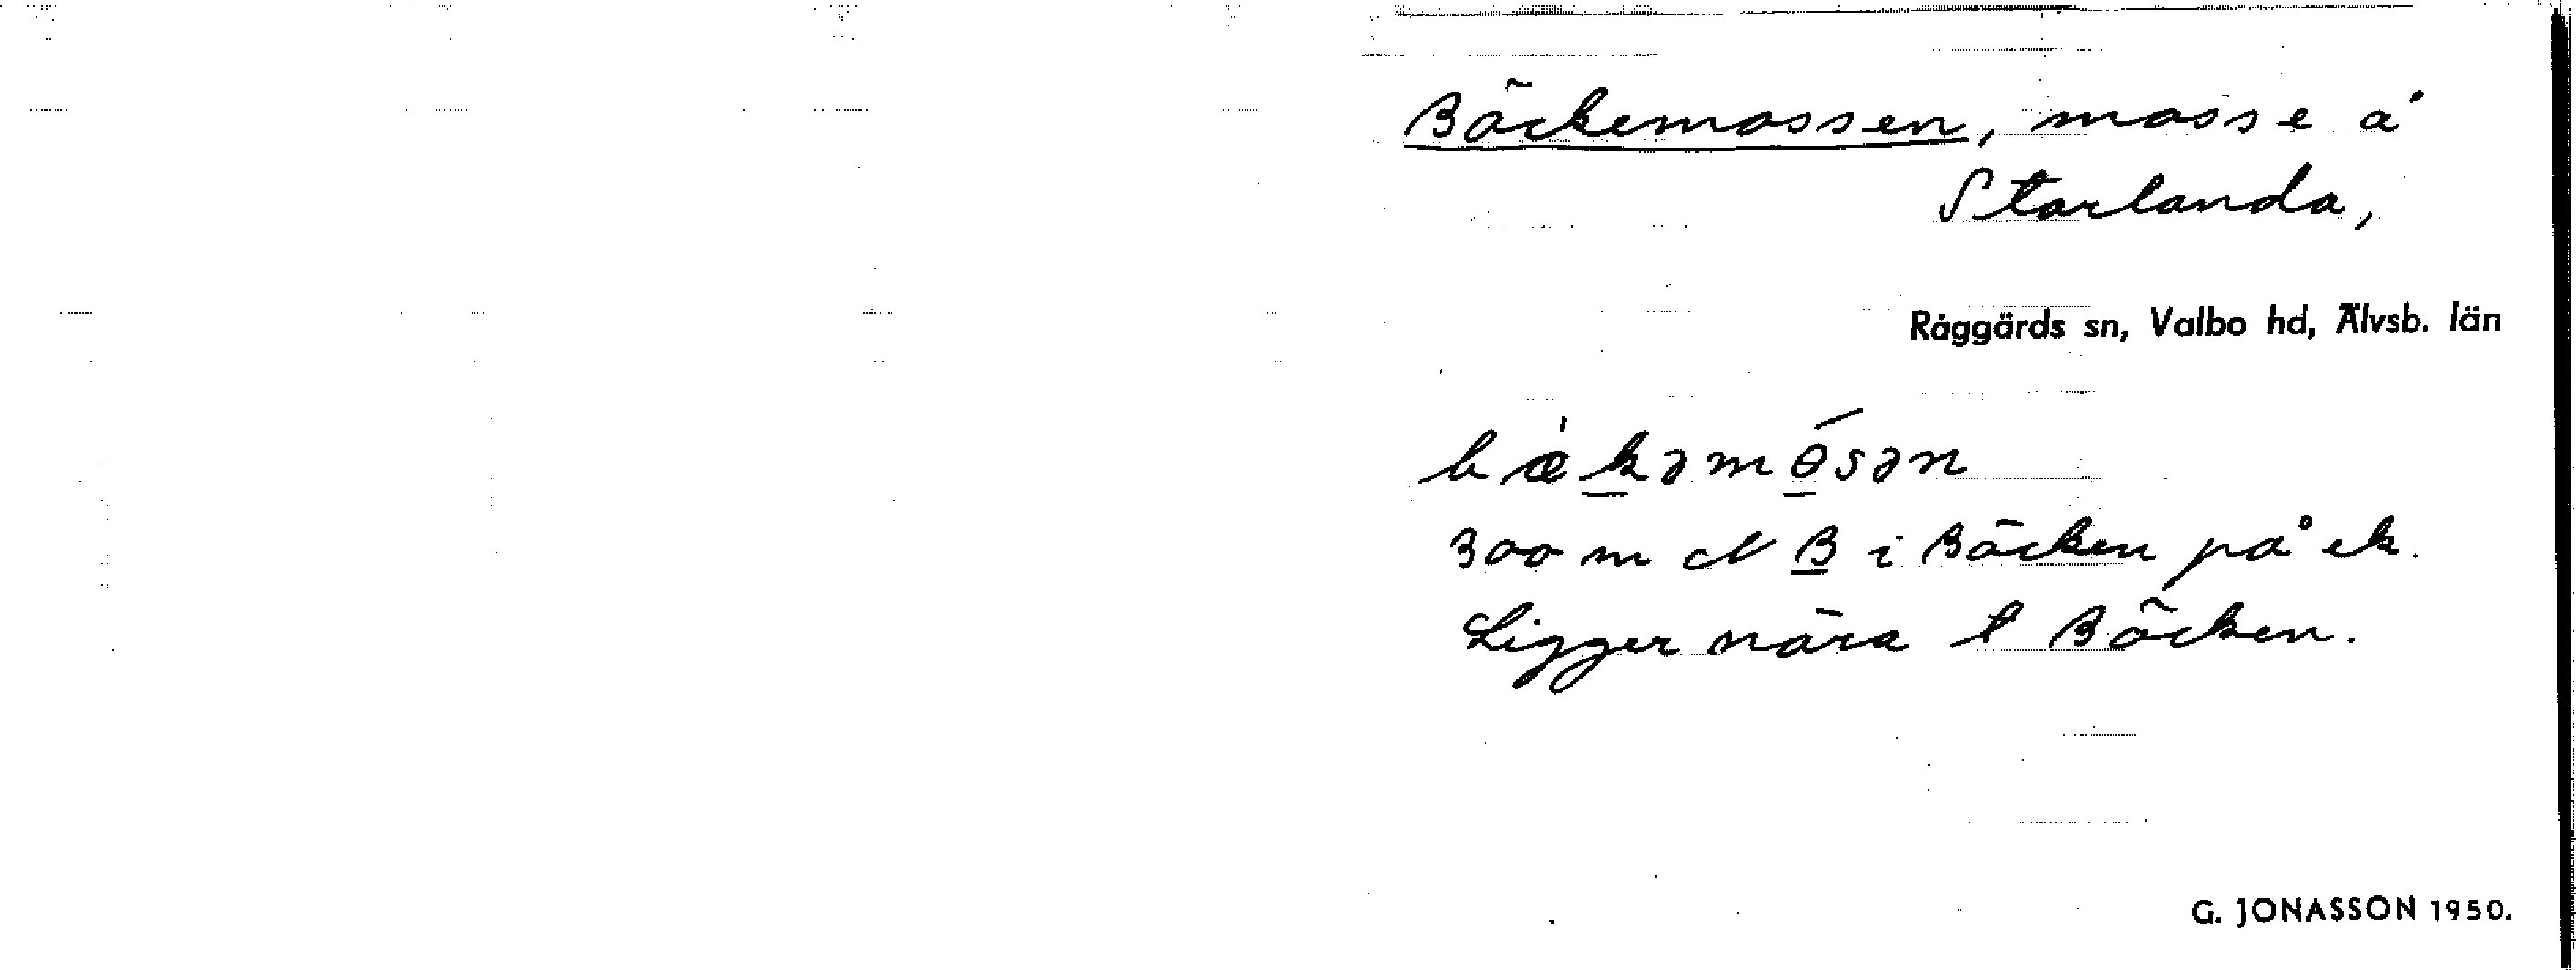 Bäckemossen, mosse å
Starlanda,
Råggärds sn, Valbo hd, Älvsb. län
bæ̀kəmósən
300 m N B i Bäcken på ek.
Ligger nära t Bäcken.
G. JONASSON 1950.